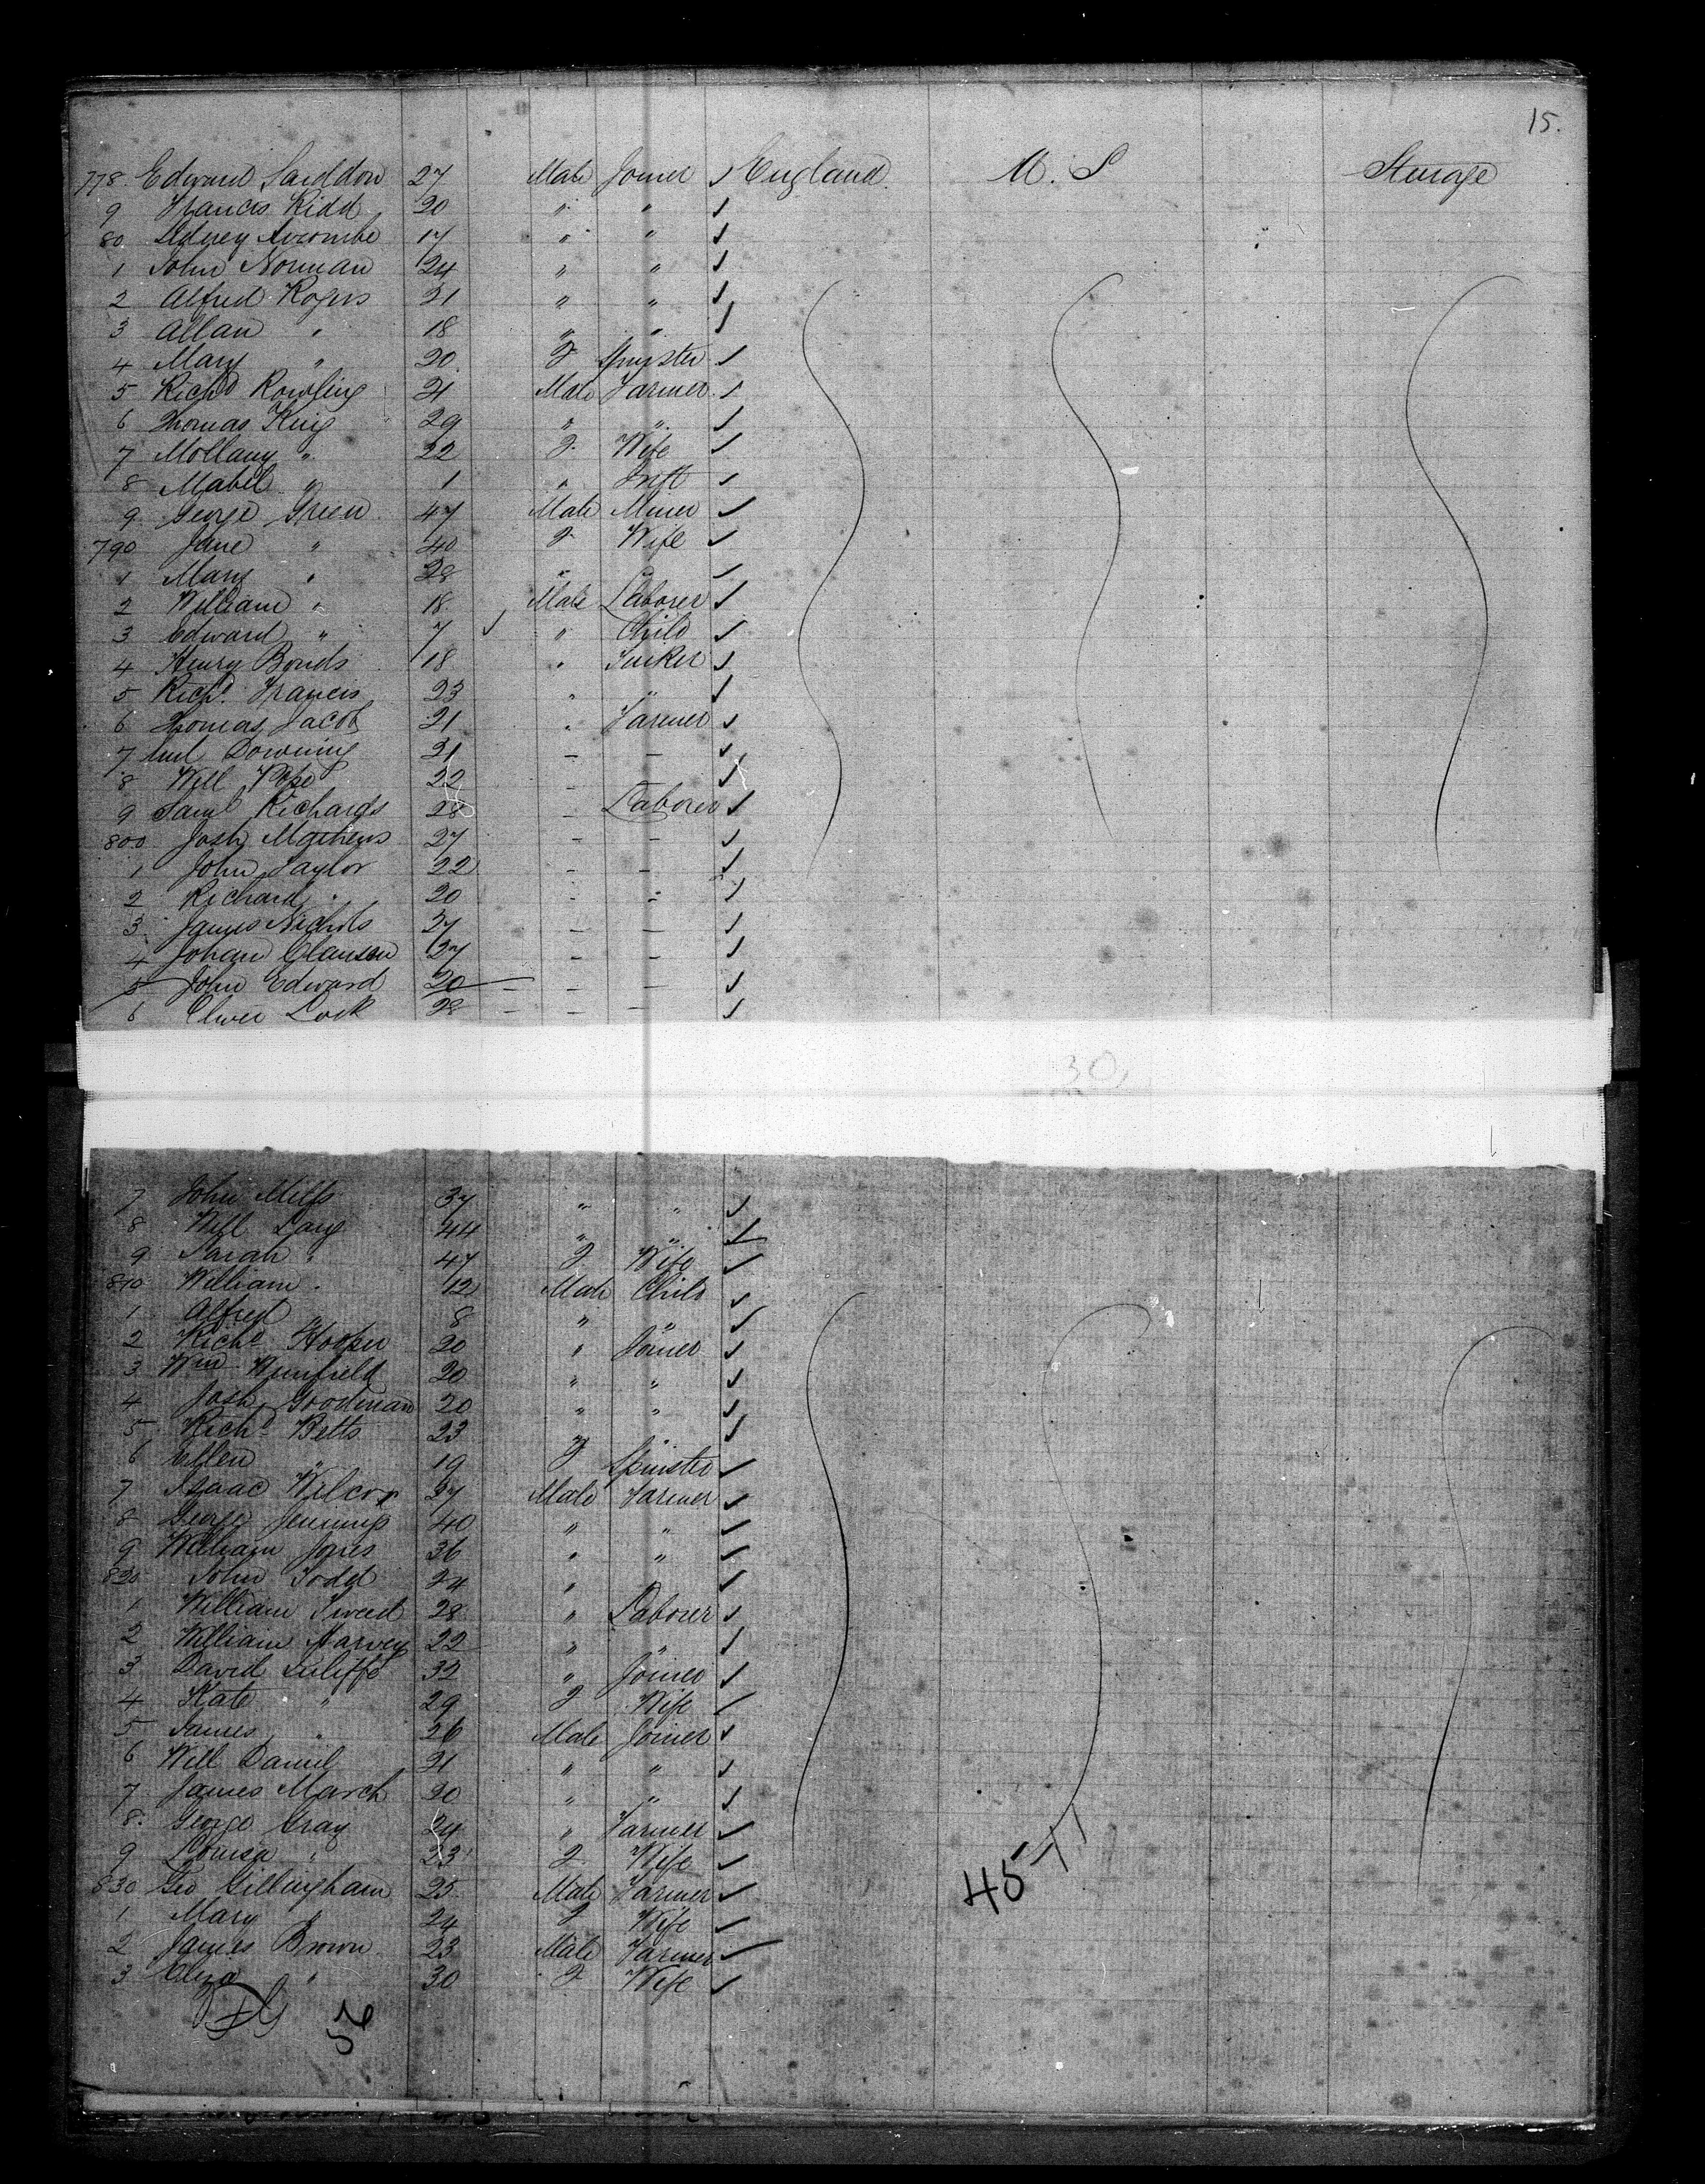 15.
778 Edward Seiddon 27 Male Joiner England U. S Steerage
9 Francis Kidd 20 " "
80 Sidney 17 " "
1 John Norman 24 " "
2 Alfred Rogers 21 " "
3 Allan " 18 " "
4 Mary " 20 F Spinster
5 Richd Rowling 21 Male Farmer
6 Thomas King 29 " "
7 Mollany " 22 F Wife
8 Mabel " 1 " Inft
9 George Green 47 Male Miner
790 Jane " 40 F Wife
1 Mary " 28 "
2 William " 18 Male Laborer
3 Edward " 7 " Child
4 Henry Bonds 18 " Tucker
5 Richd Francis 23 " "
6 Thomas Jacob 21 " Farmer
7 Downing 21 - -
8 Will Pope 22 -
9 Saml Richards 28 - Laborer
800 Josh Mathews 27 - -
1 John Taylor 22 - -
2 Richard " 20 - -
3 James Nichols 27 - -
4 Johan Clausen 27 - -
5 John Edward 20 - - -
6 Oliver Lock 28 - - -
30
7 John Mills 37 " "
8 Will Lang 44 " "
9 Sarah " 47 F Wife
810 William " 12 Male Child
1 Alfred 8 " "
2 Richd Hooper 20 " Joiner
3 Wm Winfield 20 " "
4 Josh Goodman 20 " "
5 Richd Betts 23 " "
6 Ellen " 19 F Spinster
7 Isaac Wilcox 37 Male Farmer
8 George Jennings 40 " "
9 William Jones 36 " "
820 John Todd 24 " "
1 William Tweed 28 " Laborer
2 William Harvey 22 " "
3 David Suliffe 32 " Joiner
4 Kate " 29 F Wife
5 James " 26 Male Joiner
6 Will Daniel 21 " "
7 James March 20 " "
8 George Gray 24 " Farmer
9 Louisa " 23 F Wife
830 Geo Gillingham 25 Male Farmer
1 Mary " 24 F Wife
2 James Brown 23 Male Farmer
3 Eliza " 30 F Wife
45
56